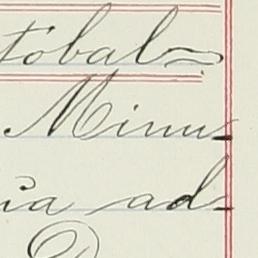 tobal
Minu-
ia ad-